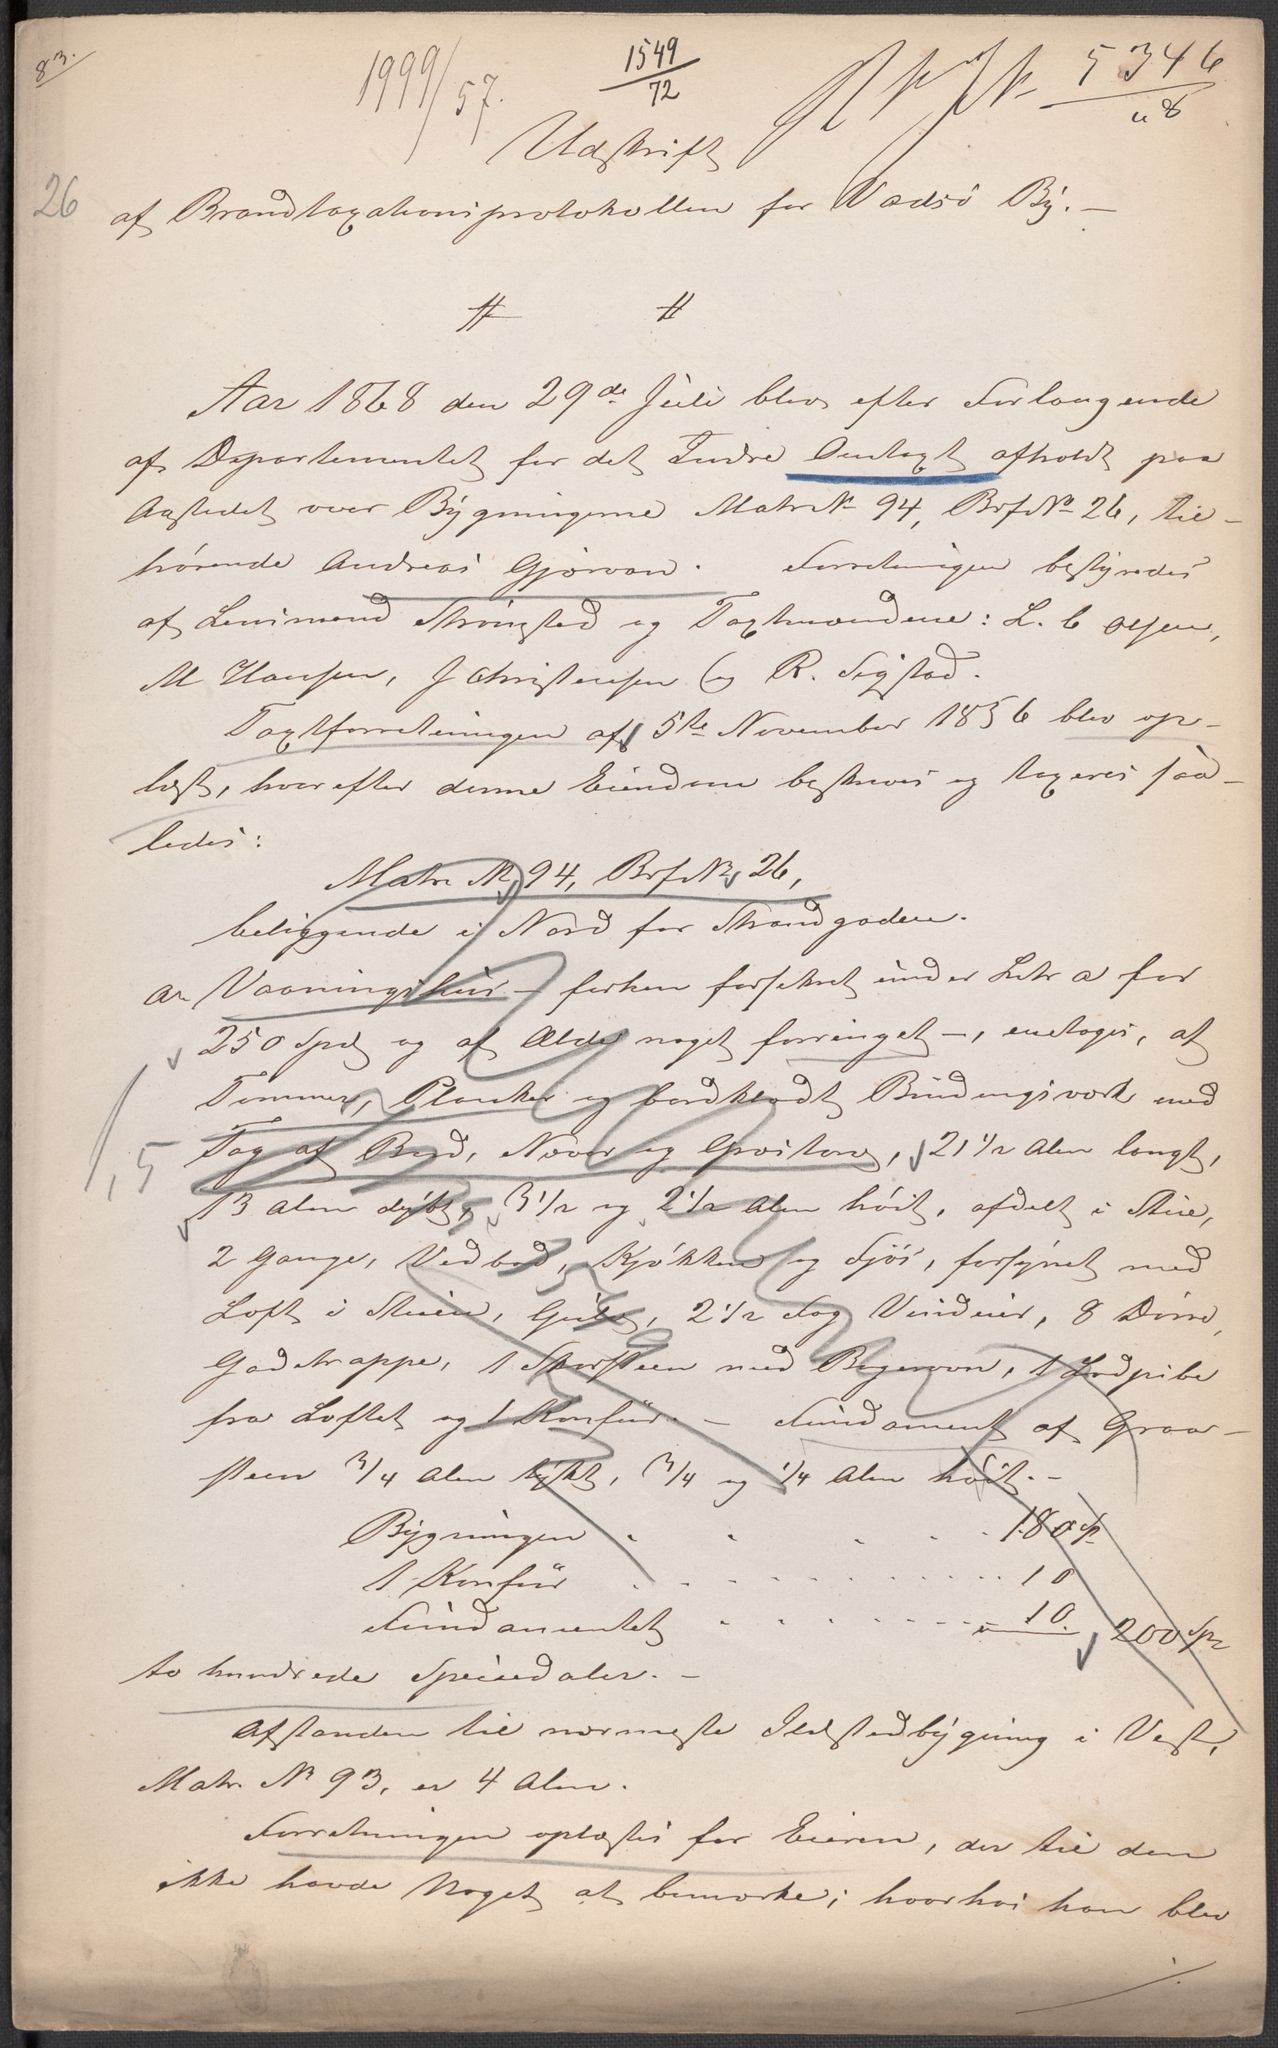 83.
1999/57.
1549/72
5346
26
Udskrift
af Brandtaxationsprotokollen for Vadsö By. —
Aar 1868 den 29de Juli blev efter Forlangende
af Departementet for det Indre Omtaxt afholdt paa
Aastedet over Bygningerne Matr № 94, Brf № 26, til-
hörende Andreas Gjörvan. Forretningen bestyredes
af Lensmand Strömsted og Taxtmændene: L. C Olsen,
M Hansen, J Christensen og R. Sigstad.
Taxtforretningen af 5te November 1856 blev op-
læst, hvorefter denne Eiendom beskrives og taxeres saa-
ledes:
Matr № 94, Brf № 26,
beliggende i Nord for Strandgaden.
a, Vaaningshus — forhen forsikret under Litr a for
250 Spd og af Ælde noget forringet —, enetages, af
Tømmer, Planker og bordklædt Bindingsværk med
Tag af Bord, Næver og Græstorv, 21 1/2 Alen langt,
13 Alen dybt, 3 1/2 og 2 1/2 Alen höit, afdelt i Stue,
2 Gange, Vedbod, Kjökken og Fjös, forsynet med
Loft i Stuen, Gulv, 2 1/2 Fag Vinduer, 8 Döre,
Gadetrappe, 1 Skorsteen med Bagerovn, 1 Lodpibe
fra Loftet og 1 Komfur. — Fundament af Graa-
steen 3/4 Alen tykt, 3/4 og 1/4 Alen höit. —
Bygningen . . . . . 180 Sp
1 Komfur . . . . . 10
Fundamentet . . . . . 10. 200 Spd
to hundrede Speciedaler. —
Afstanden til nærmeste Ildstedbygning i Vest,
Matr № 93, er 4 Alen.
Forretningen oplæstes for Eieren, der til den
ikke havde Noget at bemærke; hvorhos han blev